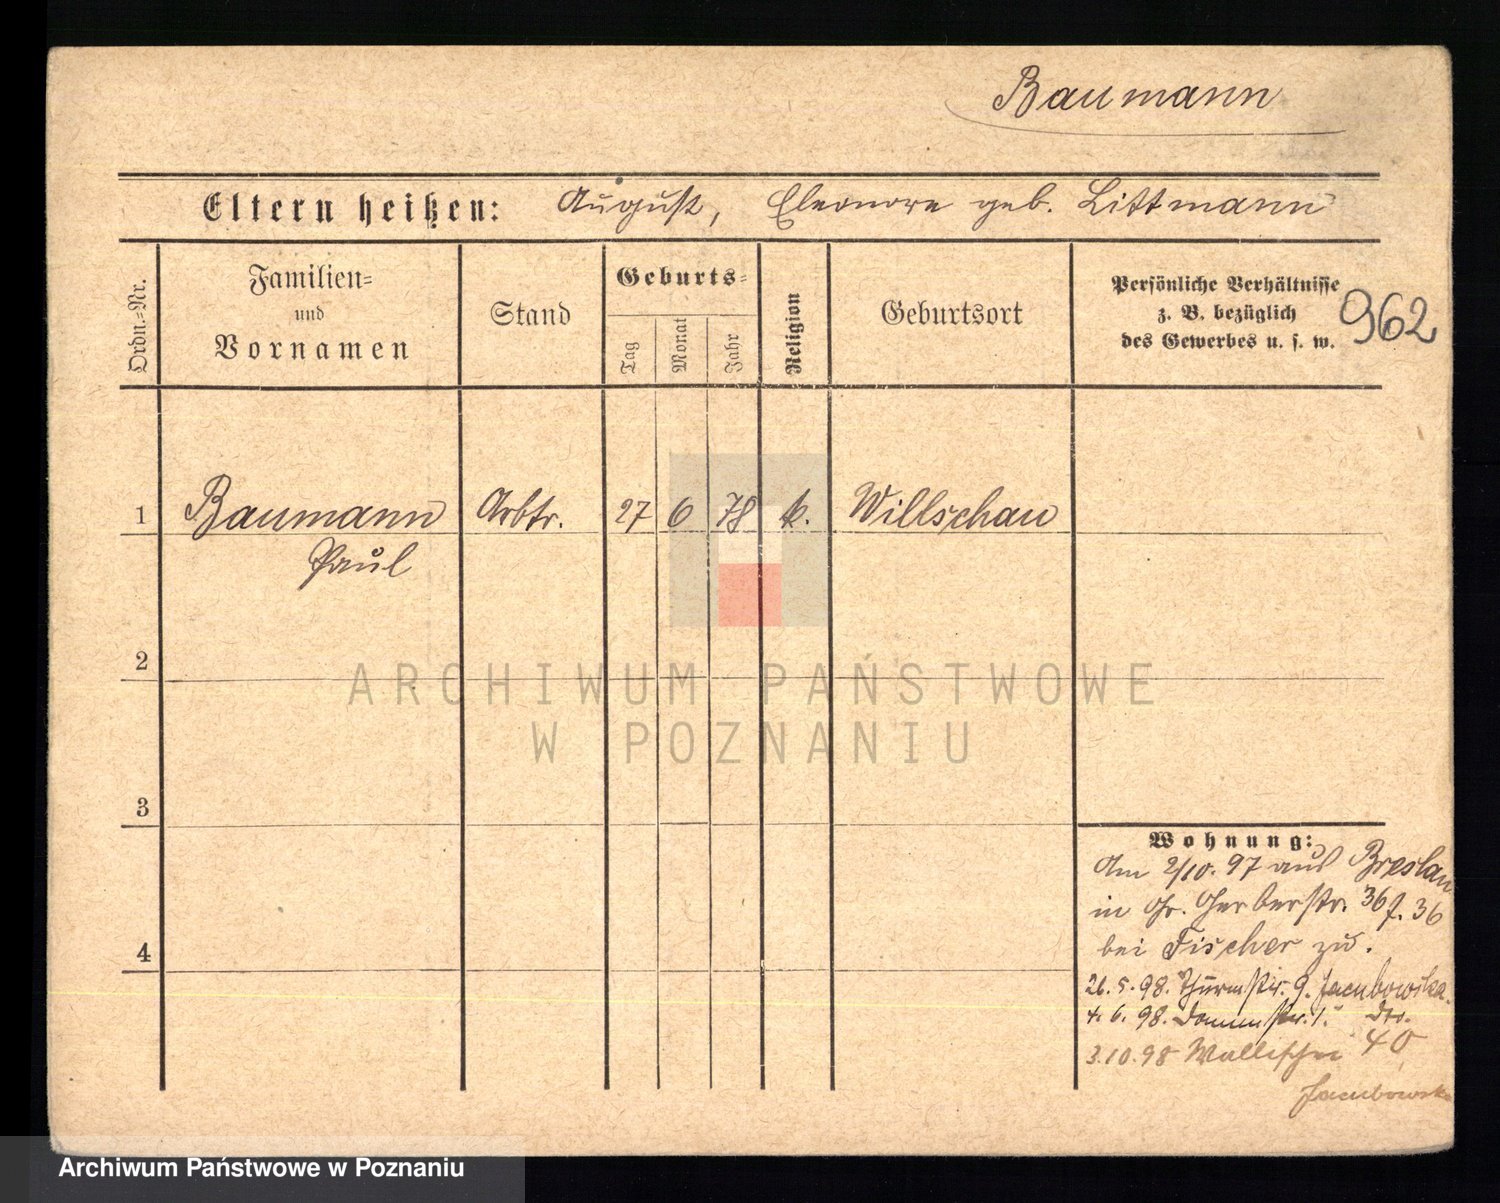 Baumann
Eltern heißen: August, Eleonore geb. Littmann
Ordn.-Nr.
Familien-
und
Vornamen
Stand
Geburts-
Tag
Monat
Jahr
Religion
Geburtsort
Persönliche Verhältnisse
z. B. bezüglich
des Gewerbes u. s. w.
962
1 Baumann Arbtr. 27 6 78 k. Willschau
Paul
2
ARCHIWUM PAŃSTWOWE
W POZNANIU
3
Wohnung:
Am 2/10. 97 aus Breslau
in Gr. Gerberstr. 36 36
4
bei Fischer zu.
26. 5. 98. Thurmstr. 9. Jacubowska.
4. 6. 98. Dammstr. 1. dto.
3.10.98 Wallischei 40
Jacubowska
Archiwum Państwowe w Poznaniu